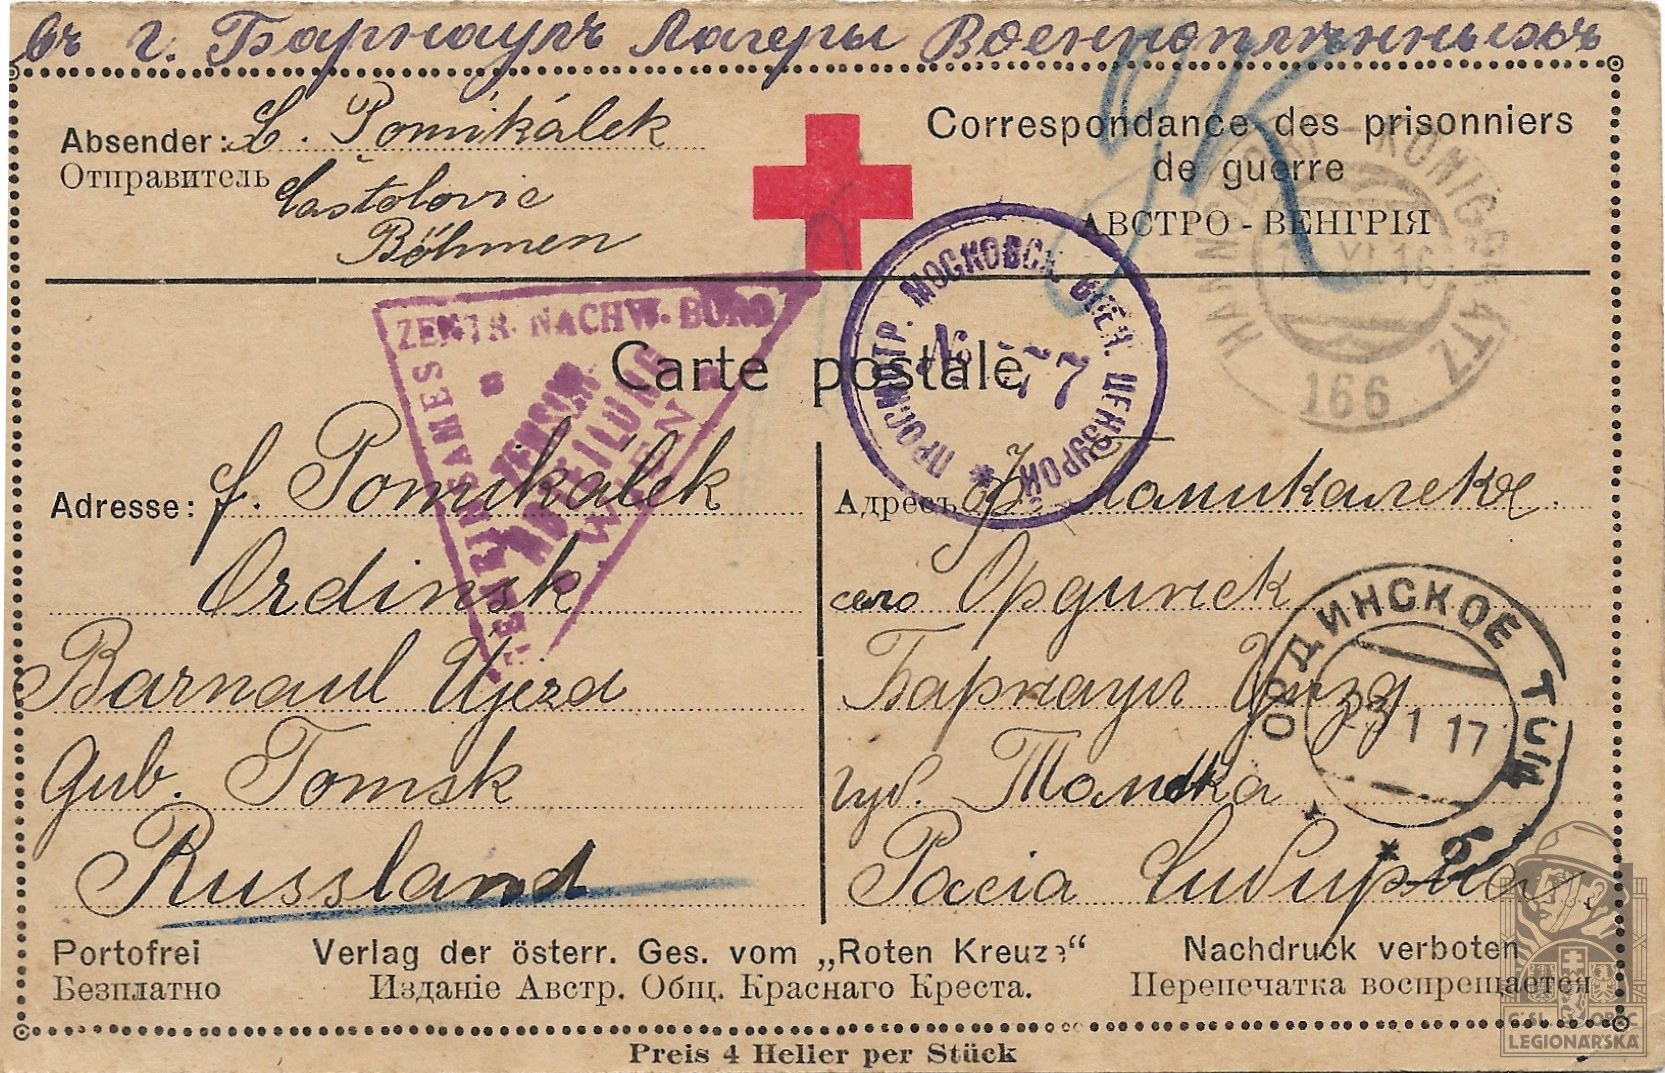 въ г. Барнаулъ Лагеры Военноплѣнныхъ
Absender: L. Pomikálek
Отправитель
Častolovic
Böhmen
Correspondance des prisonniers
de guerre
АВСТРО - ВЕНГРІЯ
KÖNIGGRATZ
XI 16
166
ZENTR. NACHW. BURO
GEMEINSAMES
ZENSUR
ABTEILUNG
WIEN
Carte postale
ПРОСМОТР. МОСКОВСК. ВОЕН. ЦЕНЗУРОЙ
№ 77
Adresse: f. Pomikálek
Ordinsk
Barnaul Ujezd
Gub. Tomsk
Russland
Адресъ Ф. Помикалекъ
село Ординск
Барнаул Уизд
Губ. Томска
Расіа Сибириа.
ОРДИНСКОЕ ТОМ
23 1 17
* б
Portofrei
Безплатно
Verlag der österr. Ges. vom „Roten Kreuze“
Изданіе Австр. Общ. Краснаго Креста.
Nachdruck verboten
Перепечатка воспрещается
Preis 4 Heller per Stück
ČSL. OBEC
LEGIONÁŘSKÁ